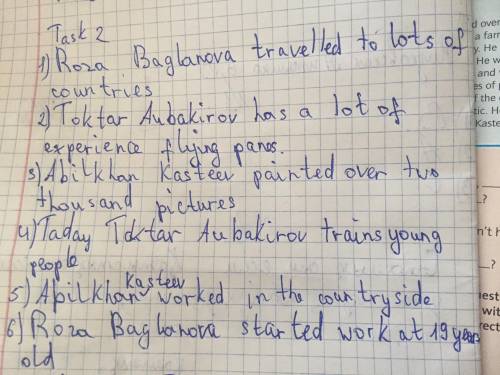 Task 2
1) Roza Baglanova travelled to lots of
countries
2) Toktar Aubakirov has a lot of
experience flying panos.
3) Abilkhan Kasteev painted over two
thousand pictures
4) Taday Toktar Aubakirov trains young
people
5) Abilkhan Kasteev worked in the countryside
6) Roza Baglanova started work at 19 years
old
d over
a farm
y. He
He w
and
es of p
f the
tic. H
Kaste
...?
n't h
...?
uest
wit
rect